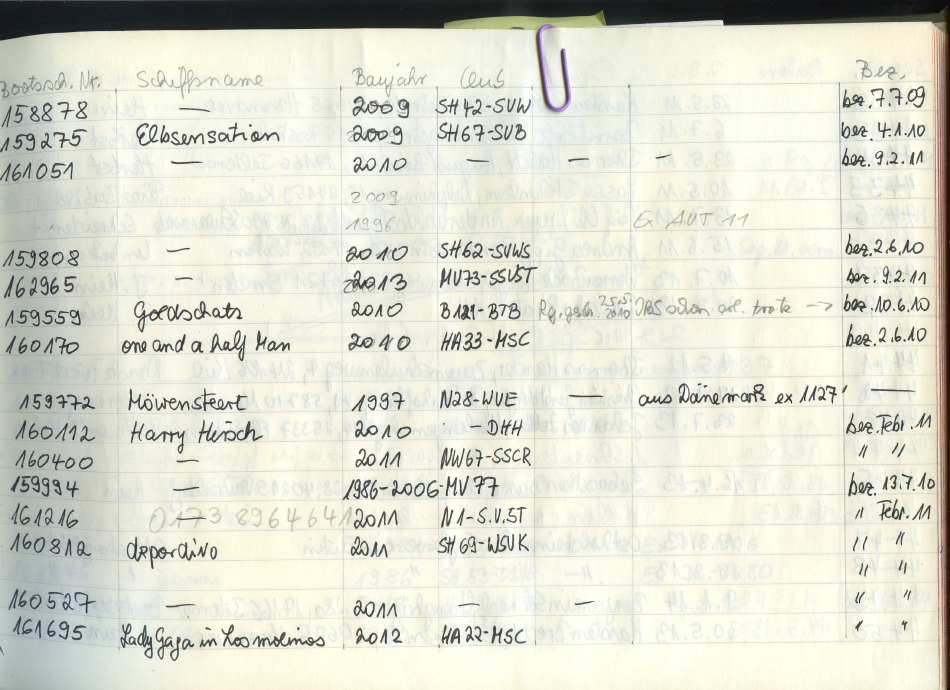 Bootssch. Nr. Schiffsname Baujahr Club Bez.
158878 — 2009 SH42-SVW bez. 7.7.09
159275 Elbsensation 2009 SH67-SVB bez. 4.1.10
161051 — 2010 — — — bez. 9.2.11
2009
1996
159808 — 2010 SH62-SVWS bez. 2.6.10
162965 — 2013 MV73-SSVST bez. 9.2.11
159559 Goldschatz 2010 bez. 10.6.10
160170 one and a half Man 2010 HA33-MSC bez. 2.6.10
159772 Möwensteert 1997 N28-WVE — aus Dänemark ex 1127
160112 Harry Hirsch 2010 - DHH bez. Febr. 11
160400 — 2011 NW67-SSCR " "
159994 — 1986-2006 MV77 bez. 13.7.10
161216 0173 8964641 2011 N1-S.V.ST " Febr. 11
160812 depordivo 2011 SH69-WSVK " "
" "
160527 — 2011 — — " "
161695 Lady Gaga in Los molinos 2012 HA22-MSC " "